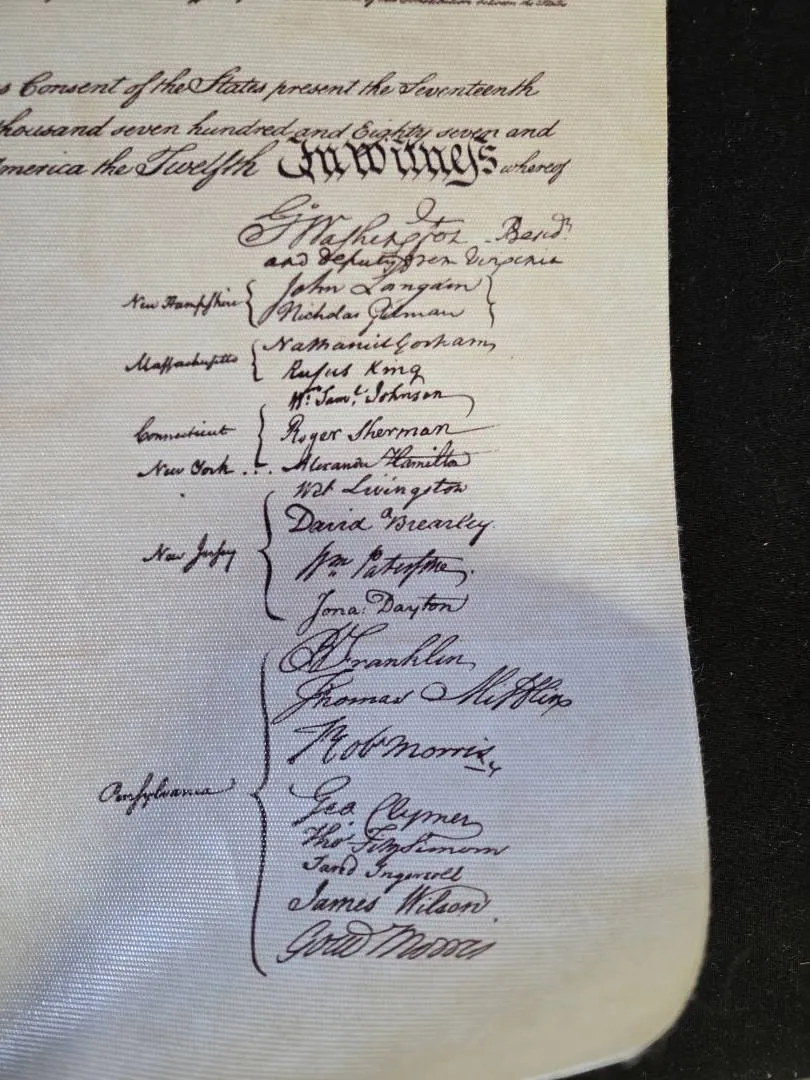 of this Constitution between the States
s Consent of the States present the Seventeenth
housand seven hundred and Eighty seven and
merica the Twelfth In Witneſs whereof
Go Washington Presidt
and deputy from Virginia
New Hampſhire { John Langdon }
Nicholas Gilman
Maſſachusetts { Nathaniel Gorham
Rufus King
Connecticut { Wm Saml Johnson
Roger Sherman
New York . . . Alexander Hamilton
New Jerſey { Wil Livingston
David Brearley.
Wm Paterson.
Jona: Dayton
Penſylvania { B Franklin
Thomas Mifflin
Rob Morris
Geo. Clymer
Tho FitzSimons
Jared Ingersoll
James Wilson
Gouv Morris